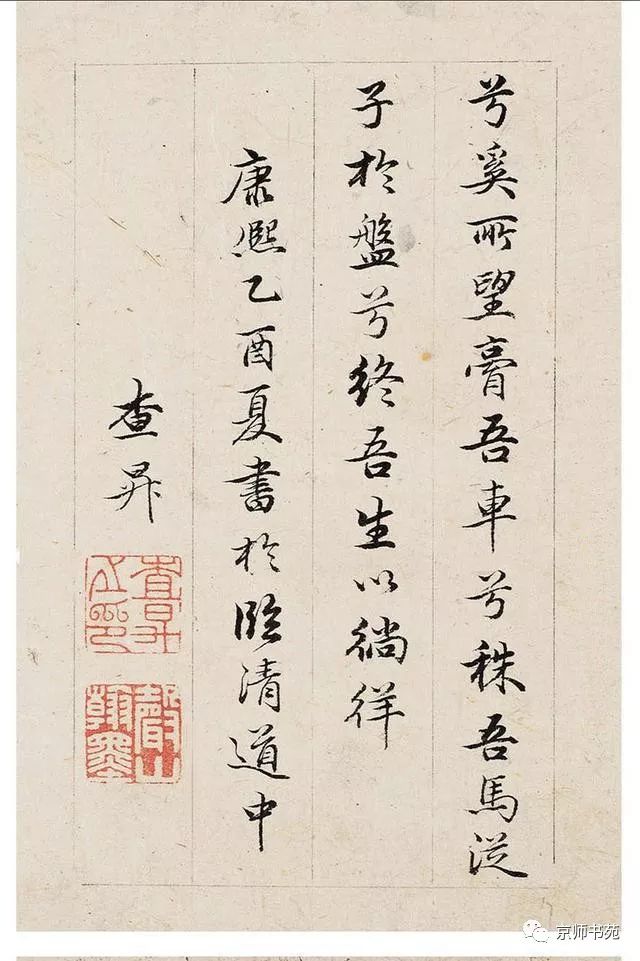 兮奚所望膏吾車兮秣吾馬從
子於盤兮終吾生以徜徉
康熙乙酉夏書於臨清道中
查昇
查昇之印
聲山翰墨
京师书苑